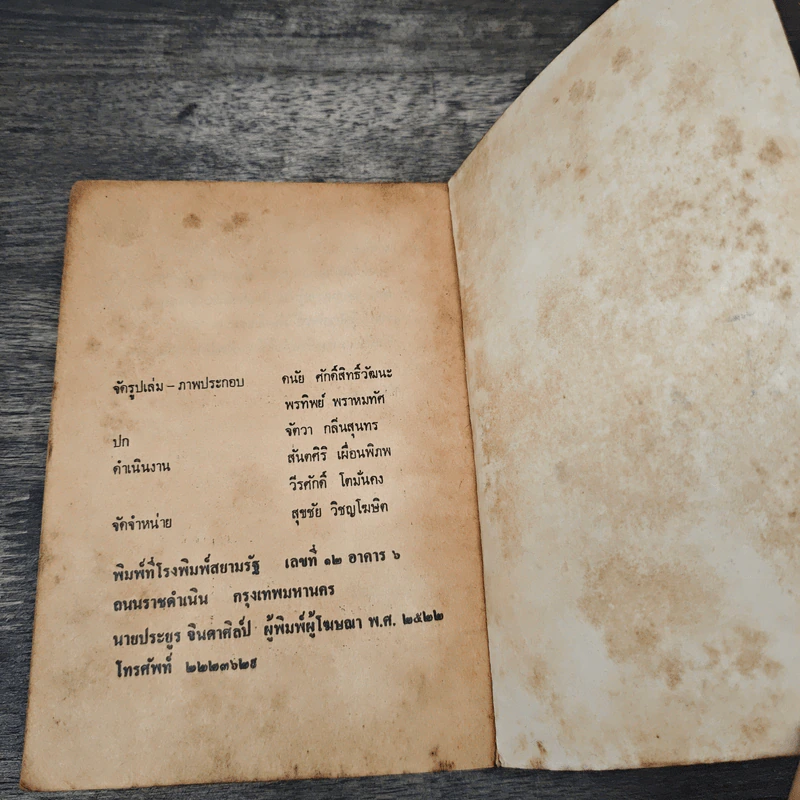 จัดรูปเล่ม – ภาพประกอบ ดนัย ศักดิ์สิทธิ์วัฒนะ
พรทิพย์ พราหมทัศ
ปก จัตวา กลิ่นสุนทร
ดำเนินงาน สันตศิริ เผื่อนพิภพ
วีรศักดิ์ โตมั่นคง
จัดจำหน่าย สุขชัย วิชญโฆษิต
พิมพ์ที่โรงพิมพ์สยามรัฐ เลขที่ ๑๒ อาคาร ๖
ถนนราชดำเนิน กรุงเทพมหานคร
นายประยูร จินดาศิลป์ ผู้พิมพ์ผู้โฆษณา พ.ศ. ๒๕๒๒
โทรศัพท์ ๒๒๒๓๖๒๙